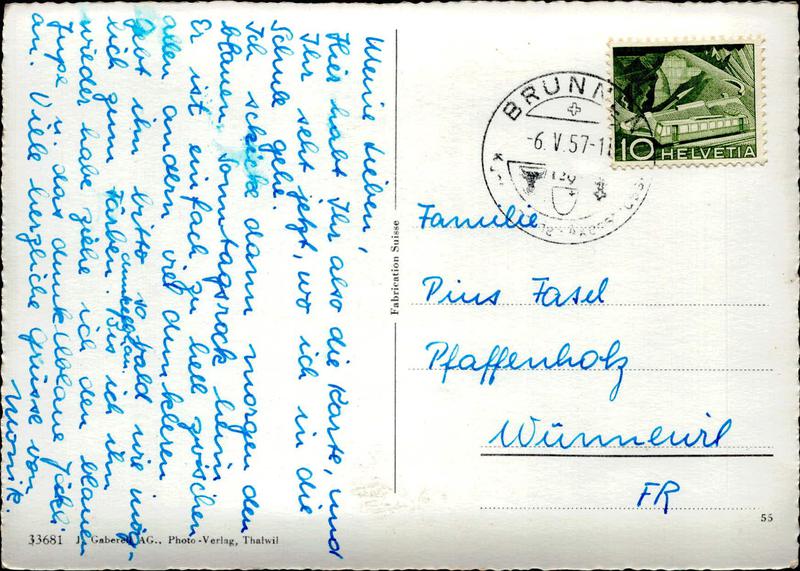 Meine Lieben,
Hier habt Ihr also die Karte, und
Ihr seht jetzt, wo ich in die
Schule gehe.
Ich schicke dann morgen den
blauen Sonntagsrock heim.
Er ist einfach zu hell zwischen
allen andern viel dunkleren
Gebt ihn bitte so bald wie mög-
lich zum Färben. Bis ich ihn
dunkelblau
wieder habe ziehe ich den blauen
Jupe u. das dunkelblaue Jäckli
an. Viele herzliche Grüsse von
Monik.
Fabrication Suisse
BRUNNEN
-6. V. 57-1
10 HELVETIA
Familie
Pius Fasel
Pfaffenholz
Wünnewil
FR
55
33681 J. Gaberell AG., Photo-Verlag, Thalwil